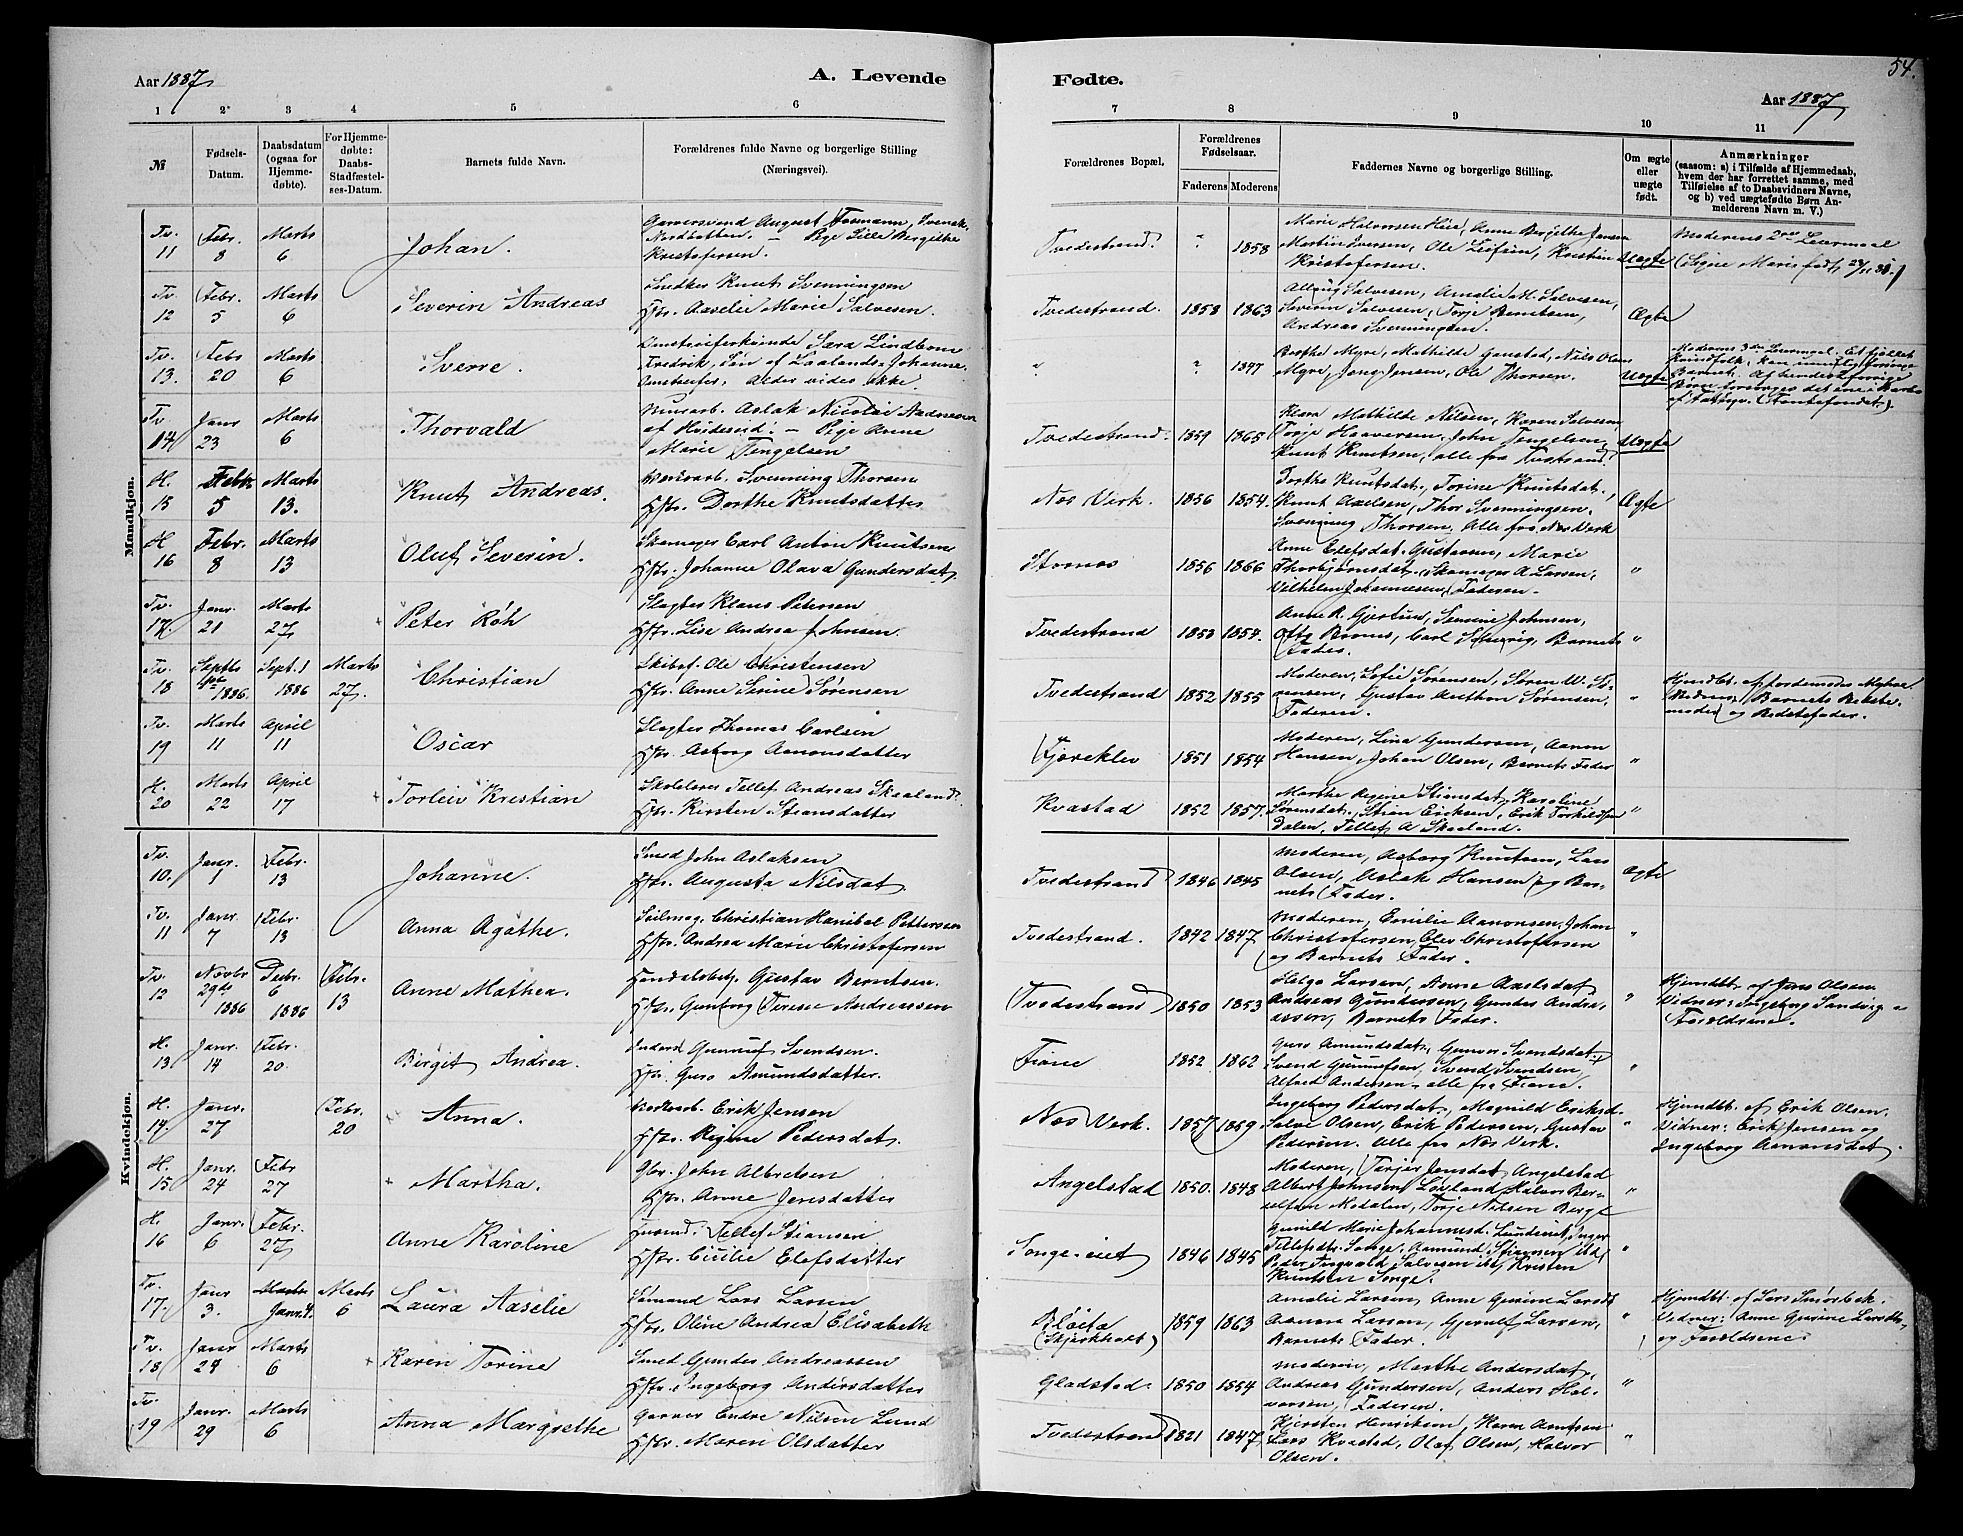 54.
Aar 1887
A. Levende
Fødte.
Aar 1887
1 2 3 4 5 6
7 8 9 10 11
№
Fødsels-
Datum.
Daabsdatum
(ogsaa for
Hjemme-
døbte).
For Hjemme-
døbte:
Daabs-
Stadfæstel-
ses-Datum.
Barnets fulde Navn.
Forældrenes fulde Navne og borgerlige Stilling
(Næringsvei).
Forældrenes Bopæl.
Forældrenes
Fødselsaar.
Faderens Moderens
Faddernes Navne og borgerlige Stilling.
Om ægte
eller
uægte
født.
Anmærkninger
(saasom: a) i Tilfælde af Hjemmedaab,
hvem der har forrettet samme, med
Tilføielse af to Daabsvidners Navne,
og b) ved uægtefødte Børn An-
melderens Navn m. V.)
Mandkjøn.
Tv. 11
Febr. 8
Marts 6
Johan.
Garversvend August
Kristofersen.
Tvedestrand.
? 1858
Kristofersen.
Uægte
Tv 12
Febr. 5
Marts 6
Severin Andreas
Snedker Knut Svenningsen
Hstr. Aaselie Marie Salvesen.
Tvedestrand.
1858 1863
Severin Salvesen, Torje Berntsen,
Andreas Svenningsen.
Ægte
Tv. 13.
Febr 20
Marts 6
Sverre.
"
? 1847
Myre, Jens Jensen, Ole Thorsen.
Uægte
Tv 14
Janr 23
Marts 6
Thorvald
Marie Tengelsen
Tvedestrand.
1859 1865
Klara Mathilde Nilsen, Karen Salvesen
Torje Haaversen, John Tengelsen,
Knut Knutsen, alle fra Tvestrand.
Uægte
H. 15
Febr. 5
Marts 13.
Knut Andreas.
Verksarb. Svenning Thorsen
Hstr. Dorthe Knutsdatter
Nes Verk.
1856 1854.
Dorthe Knutsdat., Torine Knutsdat.,
Knut Axelsen, Thor Svenningsen,
Svenning Thorsen. Alle fra Nes Verk
Ægte
H 16
Febr. 8
Marts 13
Oluf Severin.
Skomager Carl Anton Knutsen
Hstr. Johanne Olava Gundersdat.
Stornes
1856 1866
Anne Elefsdat. Gustavsen, Marie
Thorbjørnsdat., Skomager A. Larsen,
Vilhelm Johannesen, Faderen.
"
Tv. 17.
Janr. 21
Marts 27
Peter Røh
Slagter Klaus Petersen
Hstr. Lise Andrea Johnsen.
Tvedestrand
1853 1854.
Anne R. Gjertsen, Serine Johnsen,
Fader.
"
Tv. 18
Septbr 1886.
Sept. 1 1886
Marts 27.
Christian
Skibsf. Ole Christensen
Hstr. Anne Serine Sørensen
Tvedestrand
1852 1855
Moderen, Sofie Sørensen, Søren W. Sø-
rensen, Gustav Anthon Sørensen,
Faderen.
"
moder og Bedstefader.
Tv. 19
Marts 11
April 11
Oscar
Slagter Thomas Carlsen
Hstr. Asborg Aanonsdatter
Fjæreklev
1851 1854
Moderen, Lina Gundersen, Aanon
Hansen, Johan Olsen, Barnets Fader
"
H. 20
Marts 22
April 17
Torleiv Kristian
Skolelærer Tellef Andreas Skaaland.
Hstr. Kirsten Stiansdatter
Kvastad
1852 1857.
Marthe Regine Stiansdat., Karoline
Sørensdat., Stian Eriksen, Erik Torkildsen
Dalen, Tellef A Skaaland.
"
Kvindekjøn.
Tv. 10.
Janr. 1
Febr. 13
Johanne.
Smed John Aslaksen
Hstr. Augusta Nilsdat.
Tvedestrand
1846 1845
Moderen, Asborg Knutsen, Lars
Olsen, Aslak Hansen og Bar-
nets Fader.
Ægte
Tv. 11
Janr. 7
Febr. 13
Anna Agathe.
Seilmag. Christian Hanibal Pettersen
Hstr. Andrea Marie Christofersen
Tvedestrand.
1842 1847
Moderen, Emilie Aanonsen, Johan
Christofersen, Elev Christofersen
og Barnets Fader.
"
Tv. 12
Novbr 29de 1886
Decbr. 6 1886
Febr. 13
Anne Mathea.
Handelsbetj. Gustav Berntsen.
Hstr. Gunborg Terese Andreassen
Tvedestrand
1850 1853
Helga Larsen, Anne Axelsdat.
Andreas Gundersen, Gunder Andre-
assen, Barnets Fader.
"
Hjemdbt. af Jens Olsen
Vidner: Ingeborg Sandvig og
Forældrene.
H. 13
Janr. 14
Febr. 20.
Birgit Andrea.
Inderst Gunnuf Svendsen.
Hstr. Guro Amundsdatter.
Fiane
1852 1862
Guro Amundsdat., Gunvor Svendsdat.,
Svend Gunnufsen, Svend Svendsen,
Alfred Andersen, alle fra Fiane.
"
H. 14.
Janr. 27
Febr. 20
Anna.
Verksarb. Erik Jensen
Hstr. Regine Pedersdat.
Nes Verk.
1857 1859
Ingeborg Pedersdat., Magnild Eriksd.
Salve Olsen, Erik Pedersen, Gustav
Pedersen. Alle fra Nes Verk.
"
Hjemdbt. af Erik Olsen.
Vidner: Erik Jensen og
Ingeborg Aanonsdat.
H. 15
Janr. 24
Febr 27
Martha.
Gbr. John Albretsen
Hstr. Anne Jensdatter
Angelstad
1850. 1848
Moderen, Torjer Jensdat. Angelstad
Albert Johnsen Løvland, Halvor Ber-
"
H. 16
Janr. 6
Febr. 27
Anne Karoline
Husmd. Tellef Stiansen
Hstr. Cicilie Elefsdatter
Songe-eiet
1846 1845
Knutsen Songe.
"
Tv. 17.
Janr 3.
Marts Janr. 4.
Marts 6
Laura Aaselie
Sømand Lars Larsen
Hstr. Oline Andrea Elisabeth
(Skjerkholt)
1859 1863
Amalie Larsen, Anne Gurine Larsdt
Aanon Larsen, Gjerulf Larsen,
Barnets Fader.
"
Hjemdbt. af Lars Smørbek.
Vidner: Anne Gurine Larsdt.
og Forældrene.
Tv. 18
Janr 24
Marts 6
Karen Torine
Smed Gunder Andreassen
Hstr. Ingeborg Andersdatter
Gladstad.
1850 1854
Moderen, Marthe Andersdat,
Andreas Gundersen, Anders Hal-
vorsen, Faderen.
"
Tv. 19
Janr. 29
Marts 6
Anna Margrethe
Garver Endre Nilsen Lund
Hstr. Maren Olsdatter
Tvedestrand
1821 1847
Kjersten Henriksen, Maren Berntsen
Lars Kvastad, Olaf Olsen, Halvor
Olsen.
"